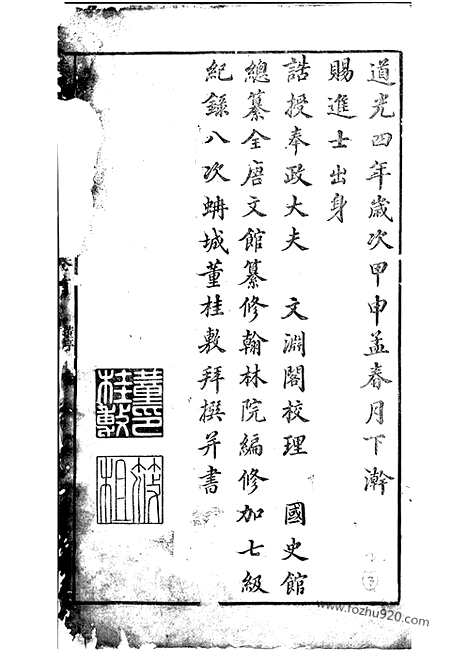 道光四年歲次甲申孟春月下澣
賜進士出身
誥授奉政大夫 文淵閣校理 國史館
總纂全唐文館纂修翰林院編修加七級
紀錄八次蚺城董桂敷拜撰并書
董印桂敷
www.fozhu920.com